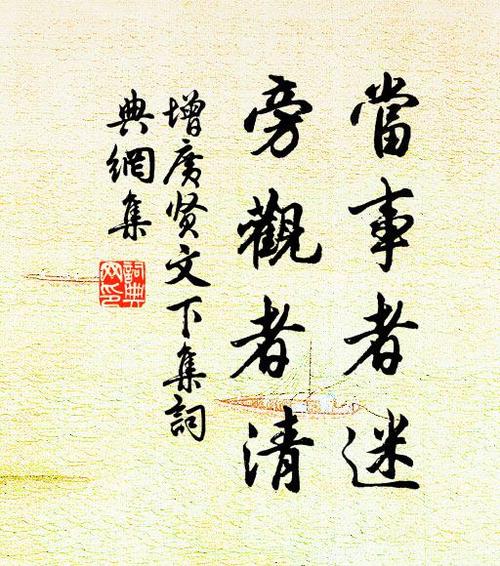 當事者迷
旁觀者清
增廣贤文下集詞
典網集
詞典
网印